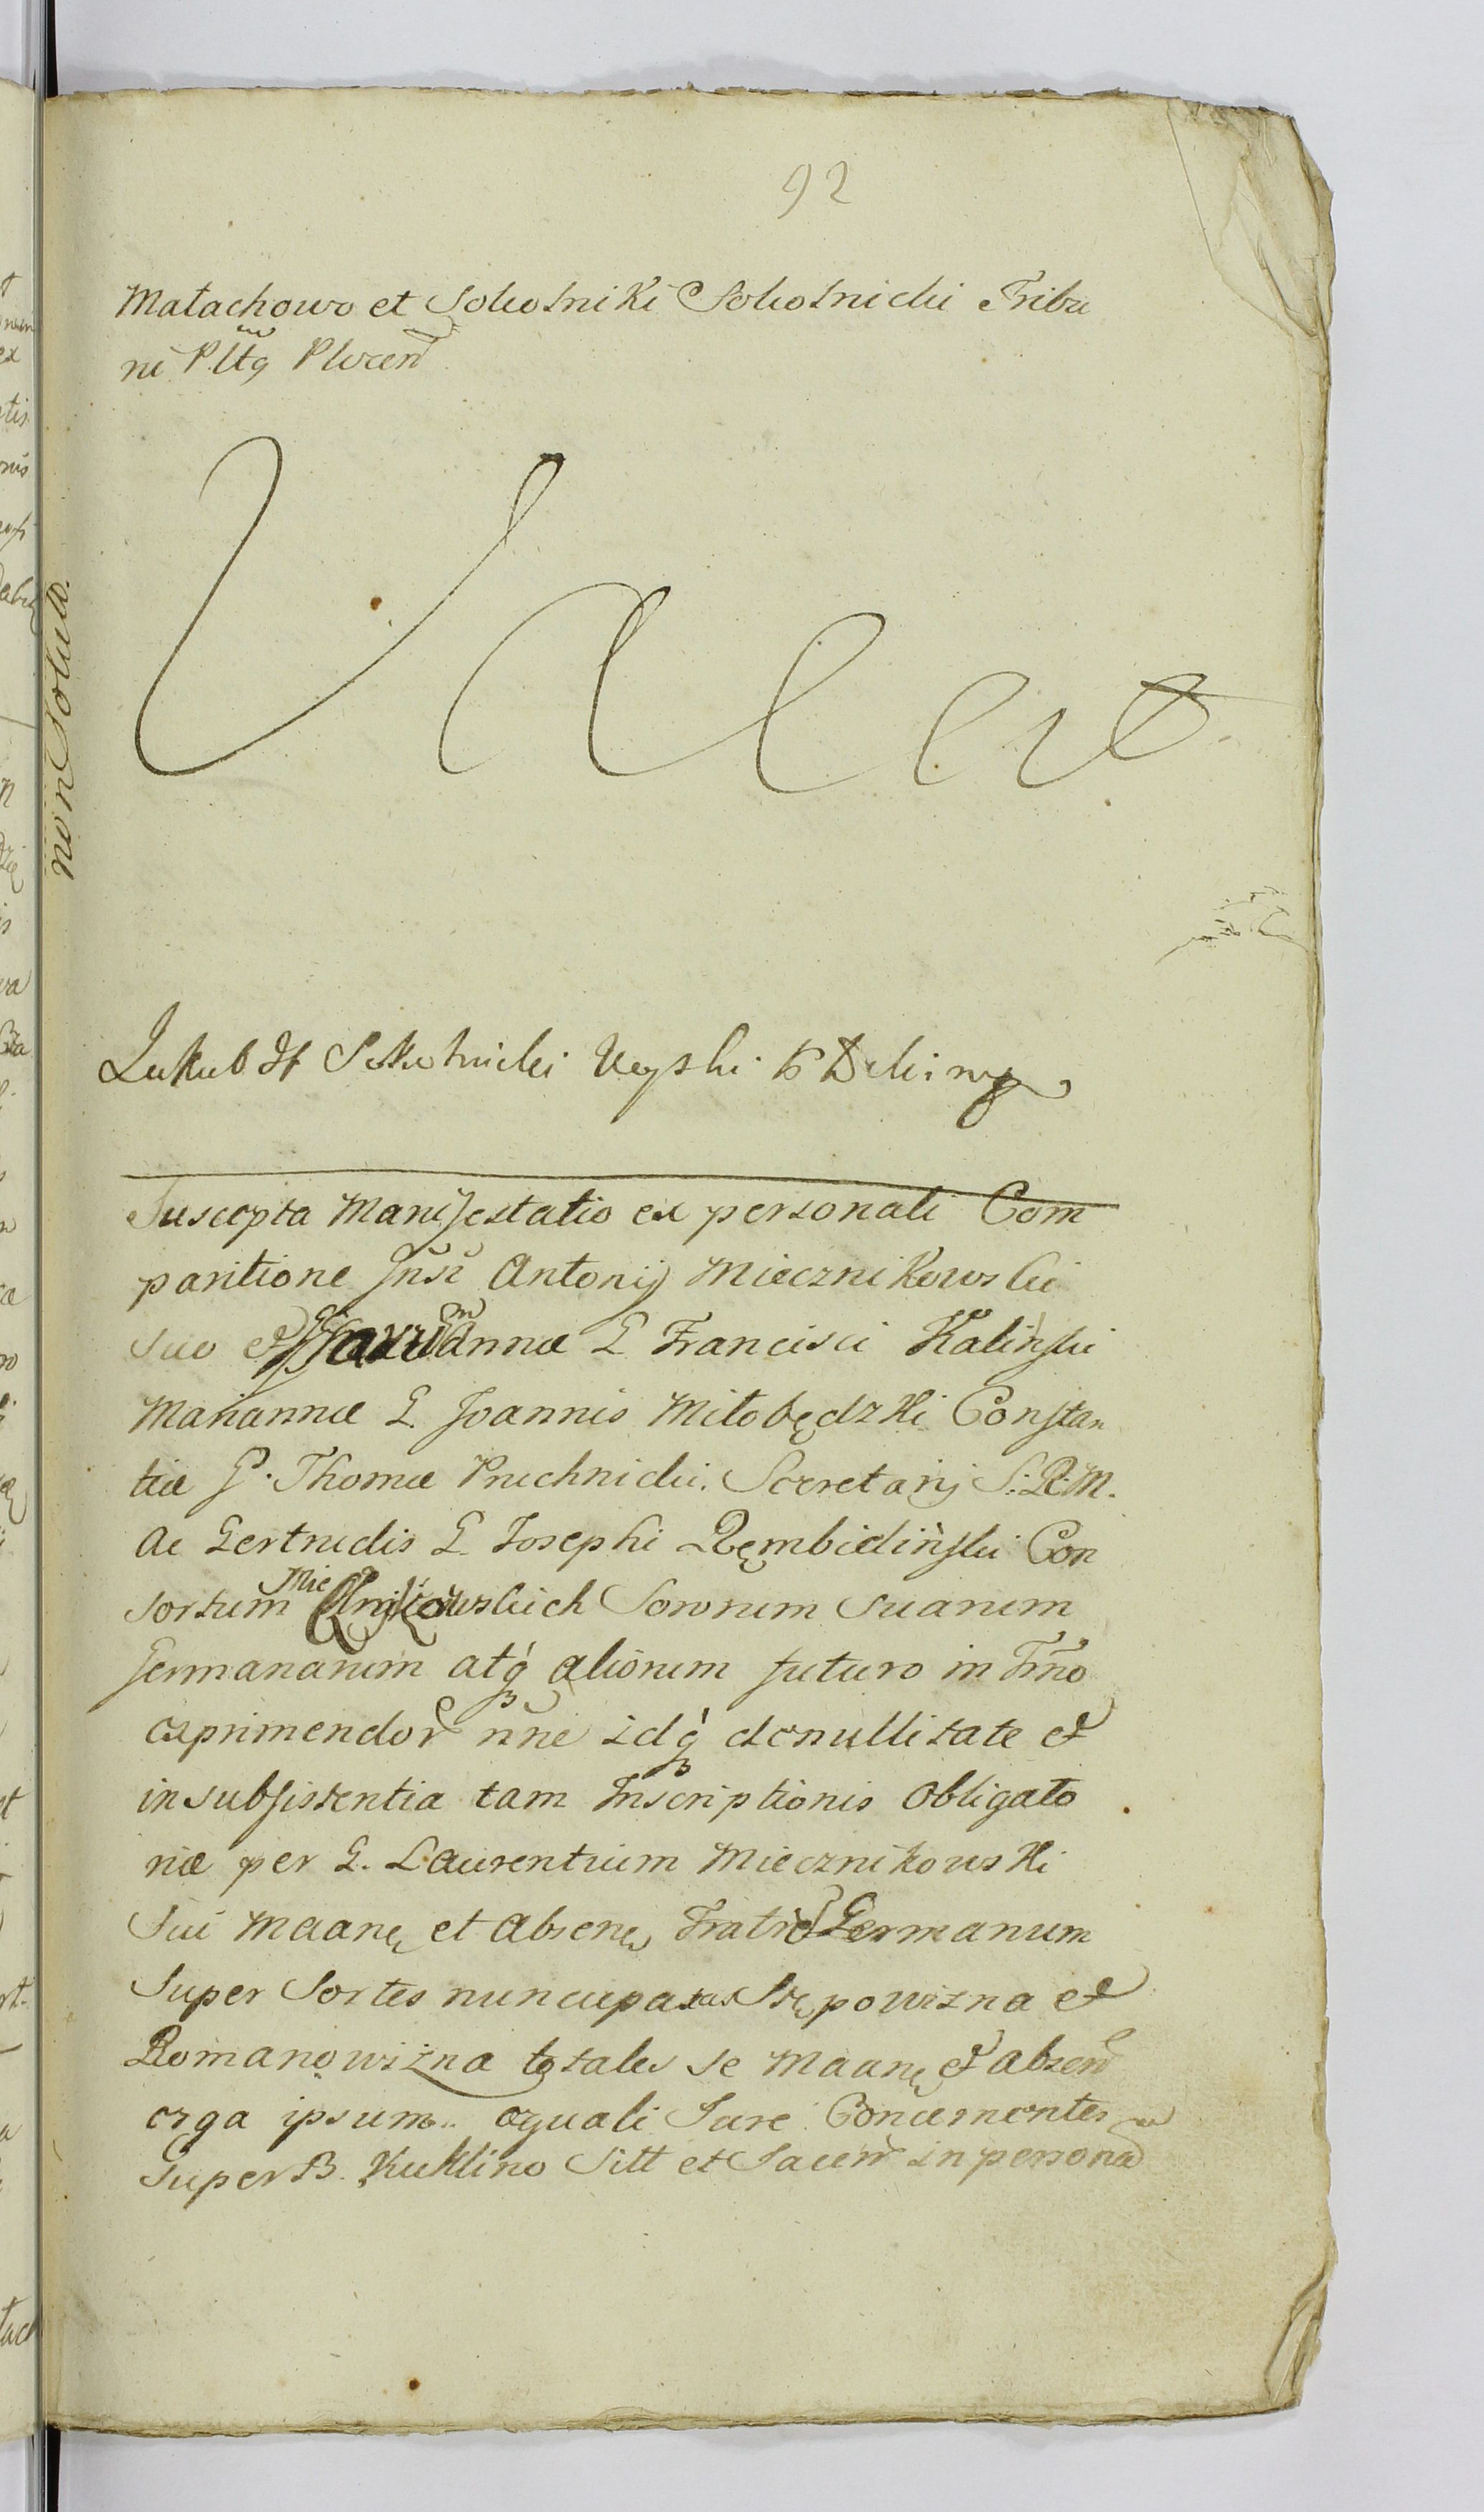 92
Małachowo et Sokolniki Sokolnicki Tribu
ni Pltꝗ Plocen
Valent
non Solut.
Jakub
Suscepta Manifestatio ex personali Com
paritione Gnsi Antonij Miecznikowski
suo et Annæ G Francisci Kaliński
Mariannæ G. Joannis Miłobędzki Constan
tiæ G. Thomæ Pruchnicki. Secretarij S: R: M.
ac Gertrudis G. Josephi Rembieliński Con
sortum Sororum Suarum
Germanarum atq alionum futuro in Trno
exprimendor nne idq de nullitate et
insubsistentia tam Inscriptionis Obligato
riæ per G. Laurentium Miecznikowski
Sui Maanę et absenę Fratrem Germanum
Super Sortes nuncupatas Stępowizna et
Romanowizna totales se Maanę et absen
erga ipsum æquali Jure Concernentes
Super B. Kuklino Sitt et Jacen in persona